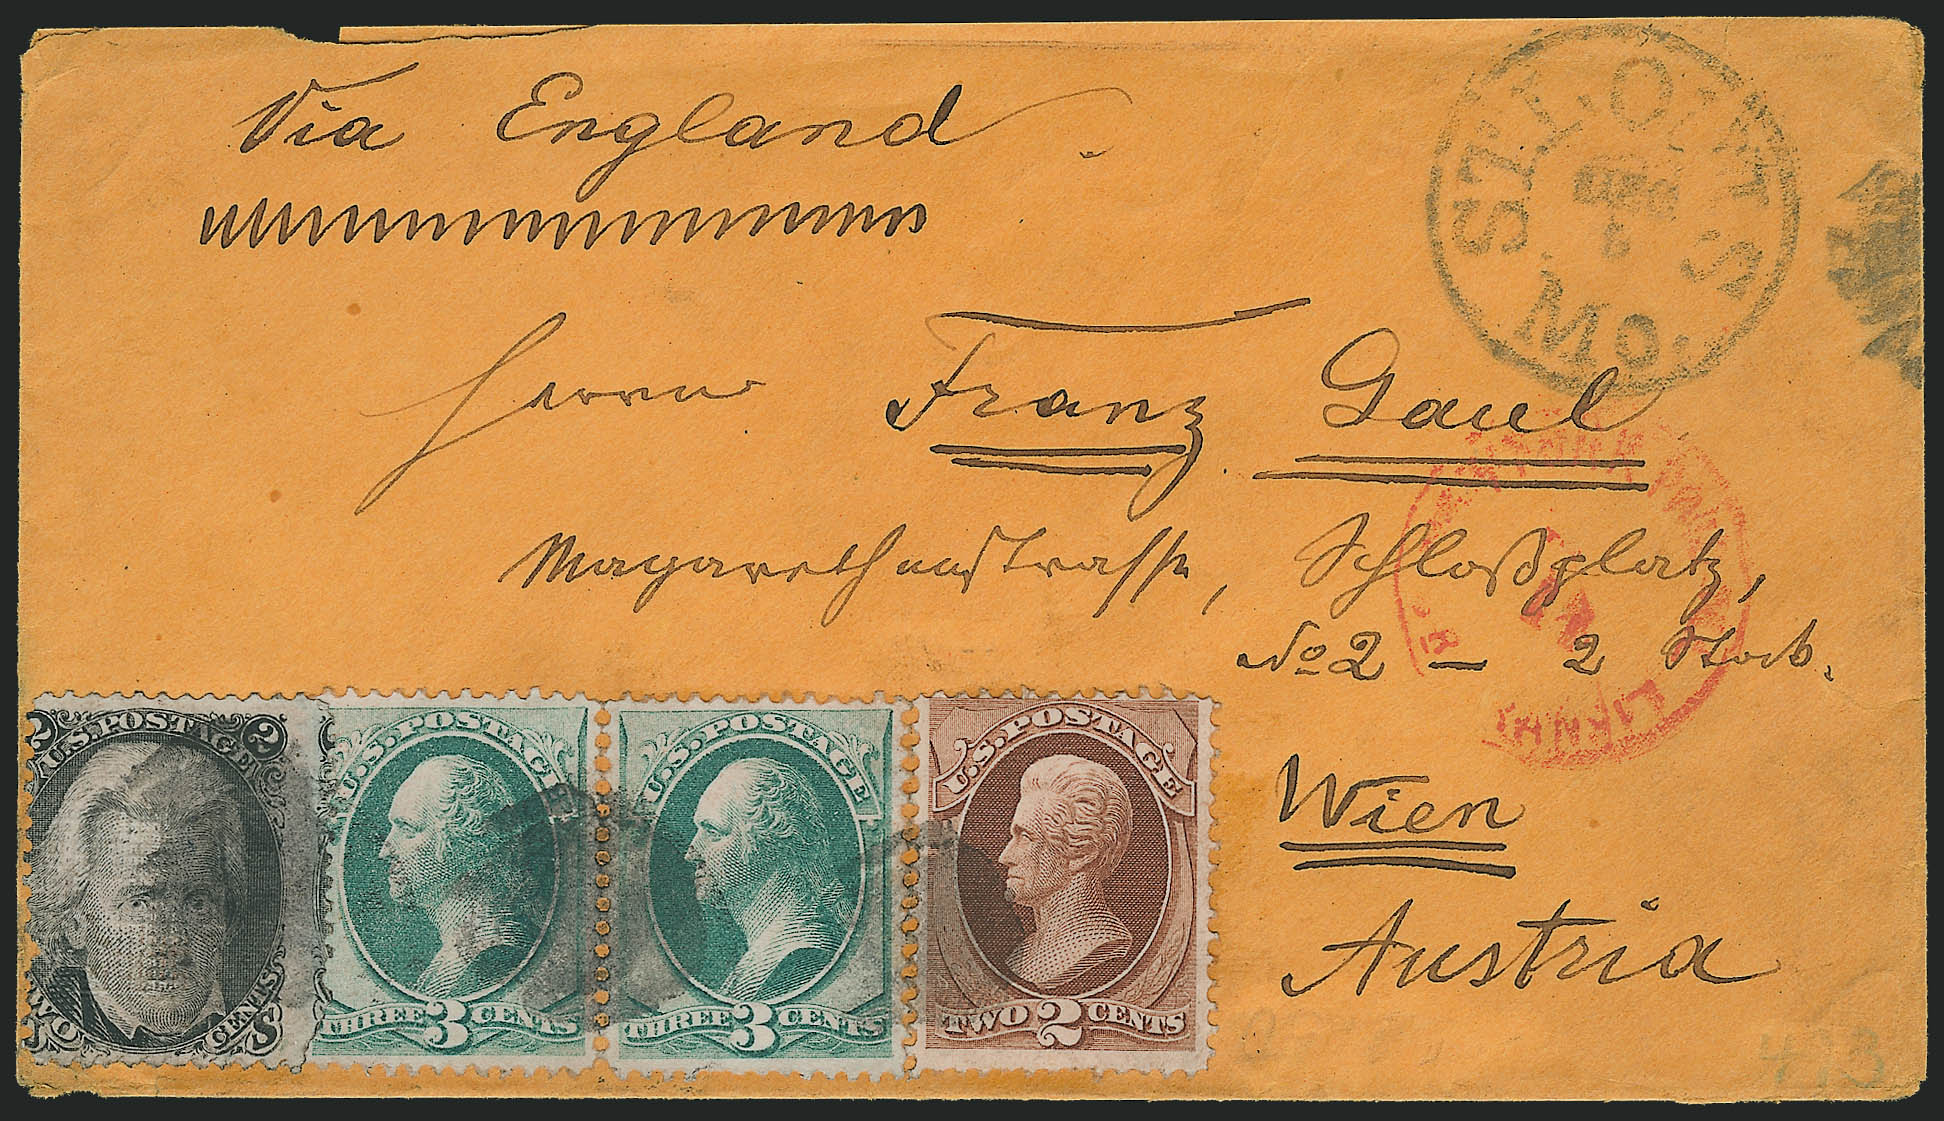 Via England.
ST. LOUIS
DEC
8
MO.
Herrn Franz Gaul
Magarethenstrasse, Schloßplatz,
No 2 — 2 Stock.
Wien
Austria
2 U.S. POSTAGE 2
TWO CENTS
U.S. POSTAGE
THREE 3 CENTS
U.S. POSTAGE
THREE 3 CENTS
U.S. POSTAGE
TWO 2 CENTS